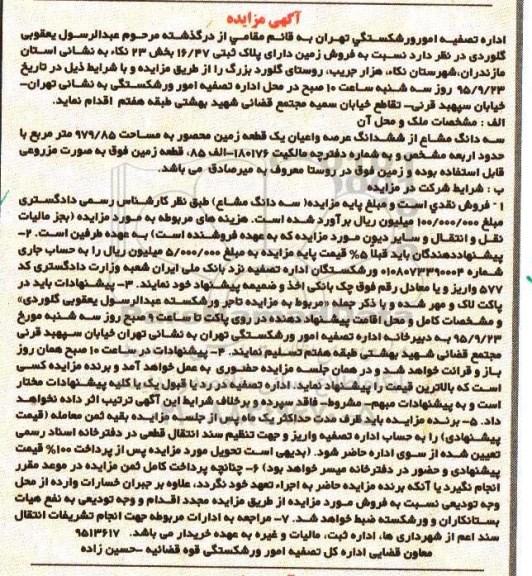 آگهی مزایده
اداره تصفیه امورورشکستگی تهران به قائم مقامی از درگذشته مرحوم عبدالرسول یعقوبی
گلوردی در نظر دارد نسبت به فروش زمین دارای پلاک ثبتی ۱۶/۴۷ بخش ۲۳ نکاء به نشانی استان
مازندران،شهرستان نکاء، هزار جریب، روستای گلورد بزرگ را از طریق مزایده و با شرایط ذیل در تاریخ
۹۵/۹/۲۳ روز سه شنبه ساعت ۱۰ صبح در محل اداره تصفیه امور ورشکستگی به نشانی تهران-
خیابان سپهبد قرنی- تقاطع خیابان سمیه مجتمع قضائی شهید بهشتی طبقه هفتم اقدام نماید.
الف : مشخصات ملک و محل آن
سه دانگ مشاع از ششدانگ عرصه واعیان یک قطعه زمین محصور به مساحت ۹۷۹/۸۵ متر مربع با
حدود اربعه مشخص و به شماره دفترچه مالکیت ۱۸۰۱۷۶-الف ۸۵، قطعه زمین فوق به صورت مزروعی
قابل استفاده بوده و زمین فوق در روستا معروف به میرصادق می باشد.
ب : شرایط شرکت در مزایده
۱- فروش نقدی است و مبلغ پایه مزایده( سه دانگ مشاع) طبق نظر کارشناس رسمی دادگستری
مبلغ ۱۰۰/۰۰۰/۰۰۰ میلیون ریال برآورد شده است. هزینه های مربوطه به مورد مزایده (بجز مالیات
نقل و انتقال و سایر دیون مورد مزایده که به عهده فروشنده است) به عهده طرفین است. ۲-
پیشنهاددهندگان باید قبلا ۵% قیمت پایه مزایده به مبلغ ۵/۰۰۰/۰۰۰ میلیون ریال را به حساب جاری
شماره ۰۱۰۸۰۷۳۳۹۰۰۰۴ ورشکستگان اداره تصفیه نزد بانک ملی ایران شعبه وزارت دادگستری کد
۵۷۷ واریز و یا معادل رقم فوق چک بانکی اخذ و ضمیمه پیشنهاد خود نمایند. ۳- پیشنهادات باید در
پاکت لاک و مهر شده و با ذکر جمله «مربوط به مزایده تاجر ورشکسته عبدالرسول یعقوبی گلوردی»
و مشخصات کامل و محل اقامت پیشنهاد دهنده در روی پاکت تا ساعت ۹ صبح روز سه شنبه مورخ
۹۵/۹/۲۳ به دبیرخانه اداره تصفیه امور ورشکستگی تهران به نشانی تهران خیابان سپهبد قرنی
مجتمع قضائی شهید بهشتی طبقه هفتم تسلیم نمایند. ۴- پیشنهادات در ساعت ۱۰ صبح همان روز
باز و قرائت خواهد شد و در همان جلسه مزایده حضوری به عمل خواهد آمد و برنده مزایده کسی
است که بالاترین قیمت را پیشنهاد نماید. اداره تصفیه در رد یا قبول یک یا کلیه پیشنهادات مختار
است و به پیشنهادات مبهم- مشروط- فاقد سپرده و برخلاف شرایط این آگهی ترتیب اثر داده نخواهد
داد. ۵- برنده مزایده باید ظرف مدت حداکثر یک ماه پس از جلسه مزایده بقیه ثمن معامله (قیمت
پیشنهادی) را به حساب اداره تصفیه واریز و جهت تنظیم سند انتقال قطعی در دفترخانه اسناد رسمی
تعیین شده از سوی اداره حاضر شود. (بدیهی است تحویل مورد مزایده پس از پرداخت ۱۰۰% قیمت
پیشنهادی و حضور در دفترخانه میسر خواهد بود) ۶- چنانچه پرداخت کامل ثمن مزایده در موعد مقرر
انجام نگیرد یا آنکه برنده مزایده حاضر به اجراء تعهد خود نگردد، علاوه بر جبران خسارات وارده از محل
وجه تودیعی نسبت به فروش مورد مزایده از طریق مزایده مجدد اقدام و وجه تودیعی به نفع هیات
بستانکاران و ورشکسته ضبط خواهد شد. ۷- مراجعه به ادارات مربوطه جهت انجام تشریفات انتقال
سند اعم از شهرداری ها، اداره ثبت، مالیات و غیره به عهده خریدار می باشد. ۹۵۱۳۶۱۷
معاون قضایی اداره کل تصفیه امور ورشکستگی قوه قضائیه -حسین زاده